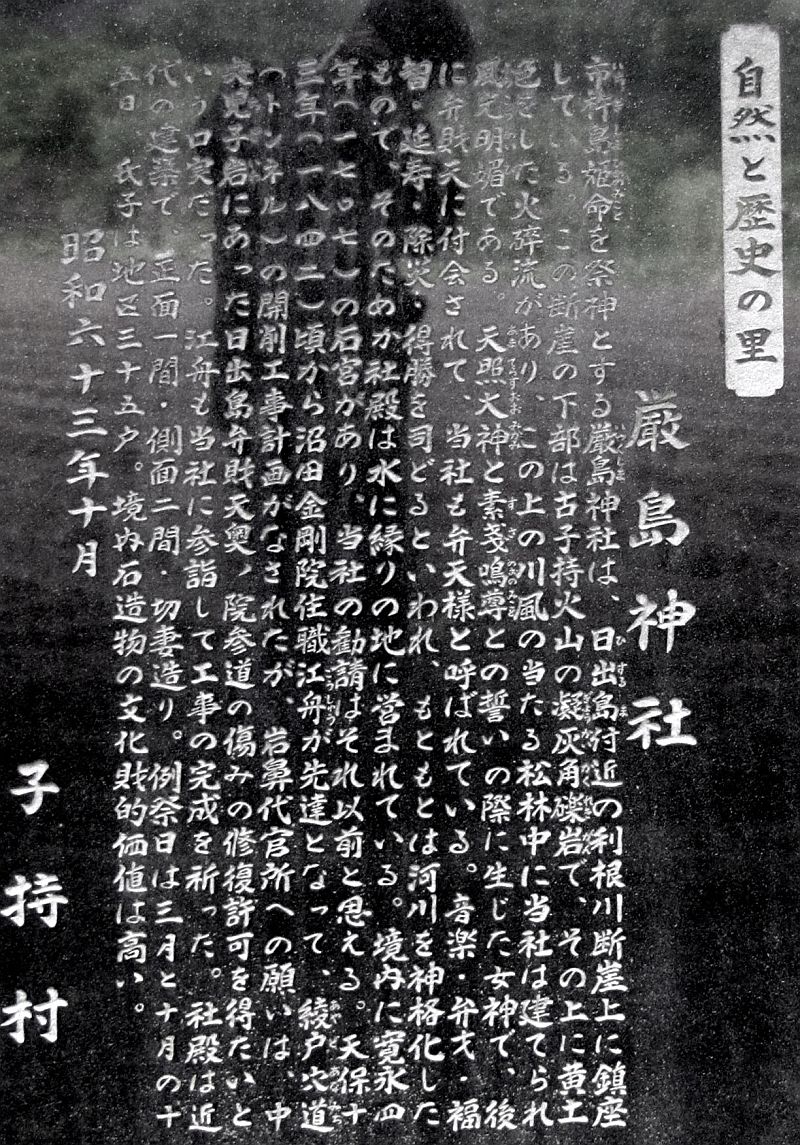 自然と歴史の里
厳島神社
市杵島姫命を祭神とする厳島神社は、日出島付近の利根川断崖上に鎮座
している。この断崖の下部は古子持火山の凝灰角礫岩で、その上に黄土
色をした火砕流があり、この上の川風の当たる松林中に当社は建てられ
風光明媚である。天照大神と素戔嗚尊との誓いの際に生じた女神で、後
に弁財天に付会されて、当社も弁天様と呼ばれている。音楽・弁才・福
智・延寿・除災・得勝を司どるといわれ、もともとは河川を神格化した
ものて、そのためか社殿は水に縁りの地に営まれている。境内に寛永四
年(一七〇七)の石宮があり、当社の勧請はそれ以前と思える。天保十
三年(一八四二)頃から沼田金剛院住職江舟が先達となって、綾戸穴道
(トンネル)の開削工事計画がなされたが、岩鼻代官所への願いは、中
央児子岩にあった日出島弁財天奥ノ院参道の傷みの修復許可を得たいと
いう口実だった。江舟も当社に参詣して工事の完成を祈った。社殿は近
代の建築で、正面一間・側面二間・切妻造り。例祭日は三月と十月の十
五日、氏子は地区三十五戸。境内石造物の文化財的価値は高い。
昭和六十三年十月
子持村